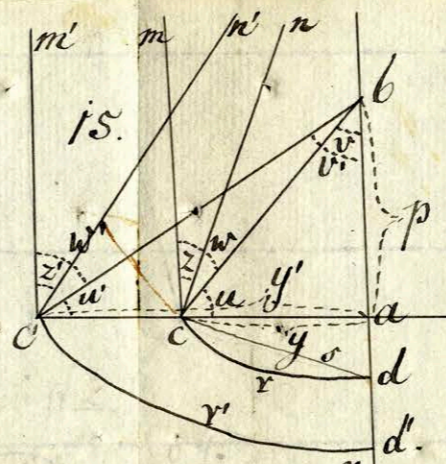 m' m n' n
b
15.
v
v'
p
w' w
z' z
u' u y'
c' c a
y s
r d
r' d'.